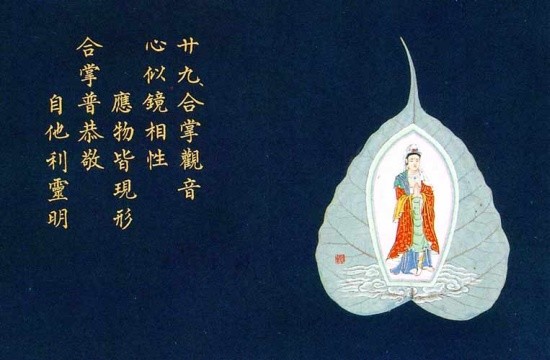 廿九、合掌觀音
心似鏡相性
應物皆現形
合掌普恭敬
自他利靈明